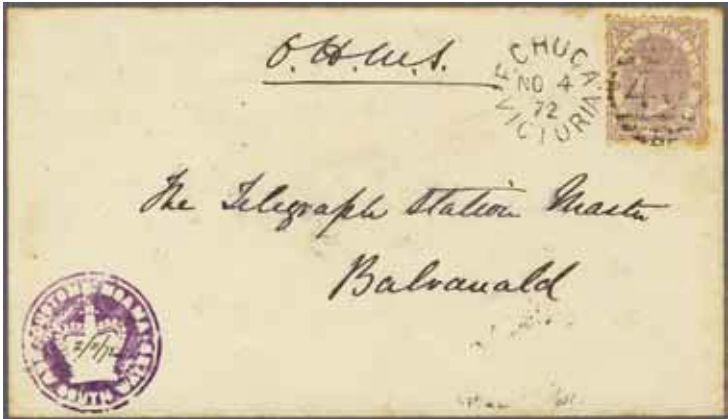 O.H.M.S.
ECHUCA
NO 4
72
VICTORIA
The Telegraph Station Master
Balranald
2/11/72